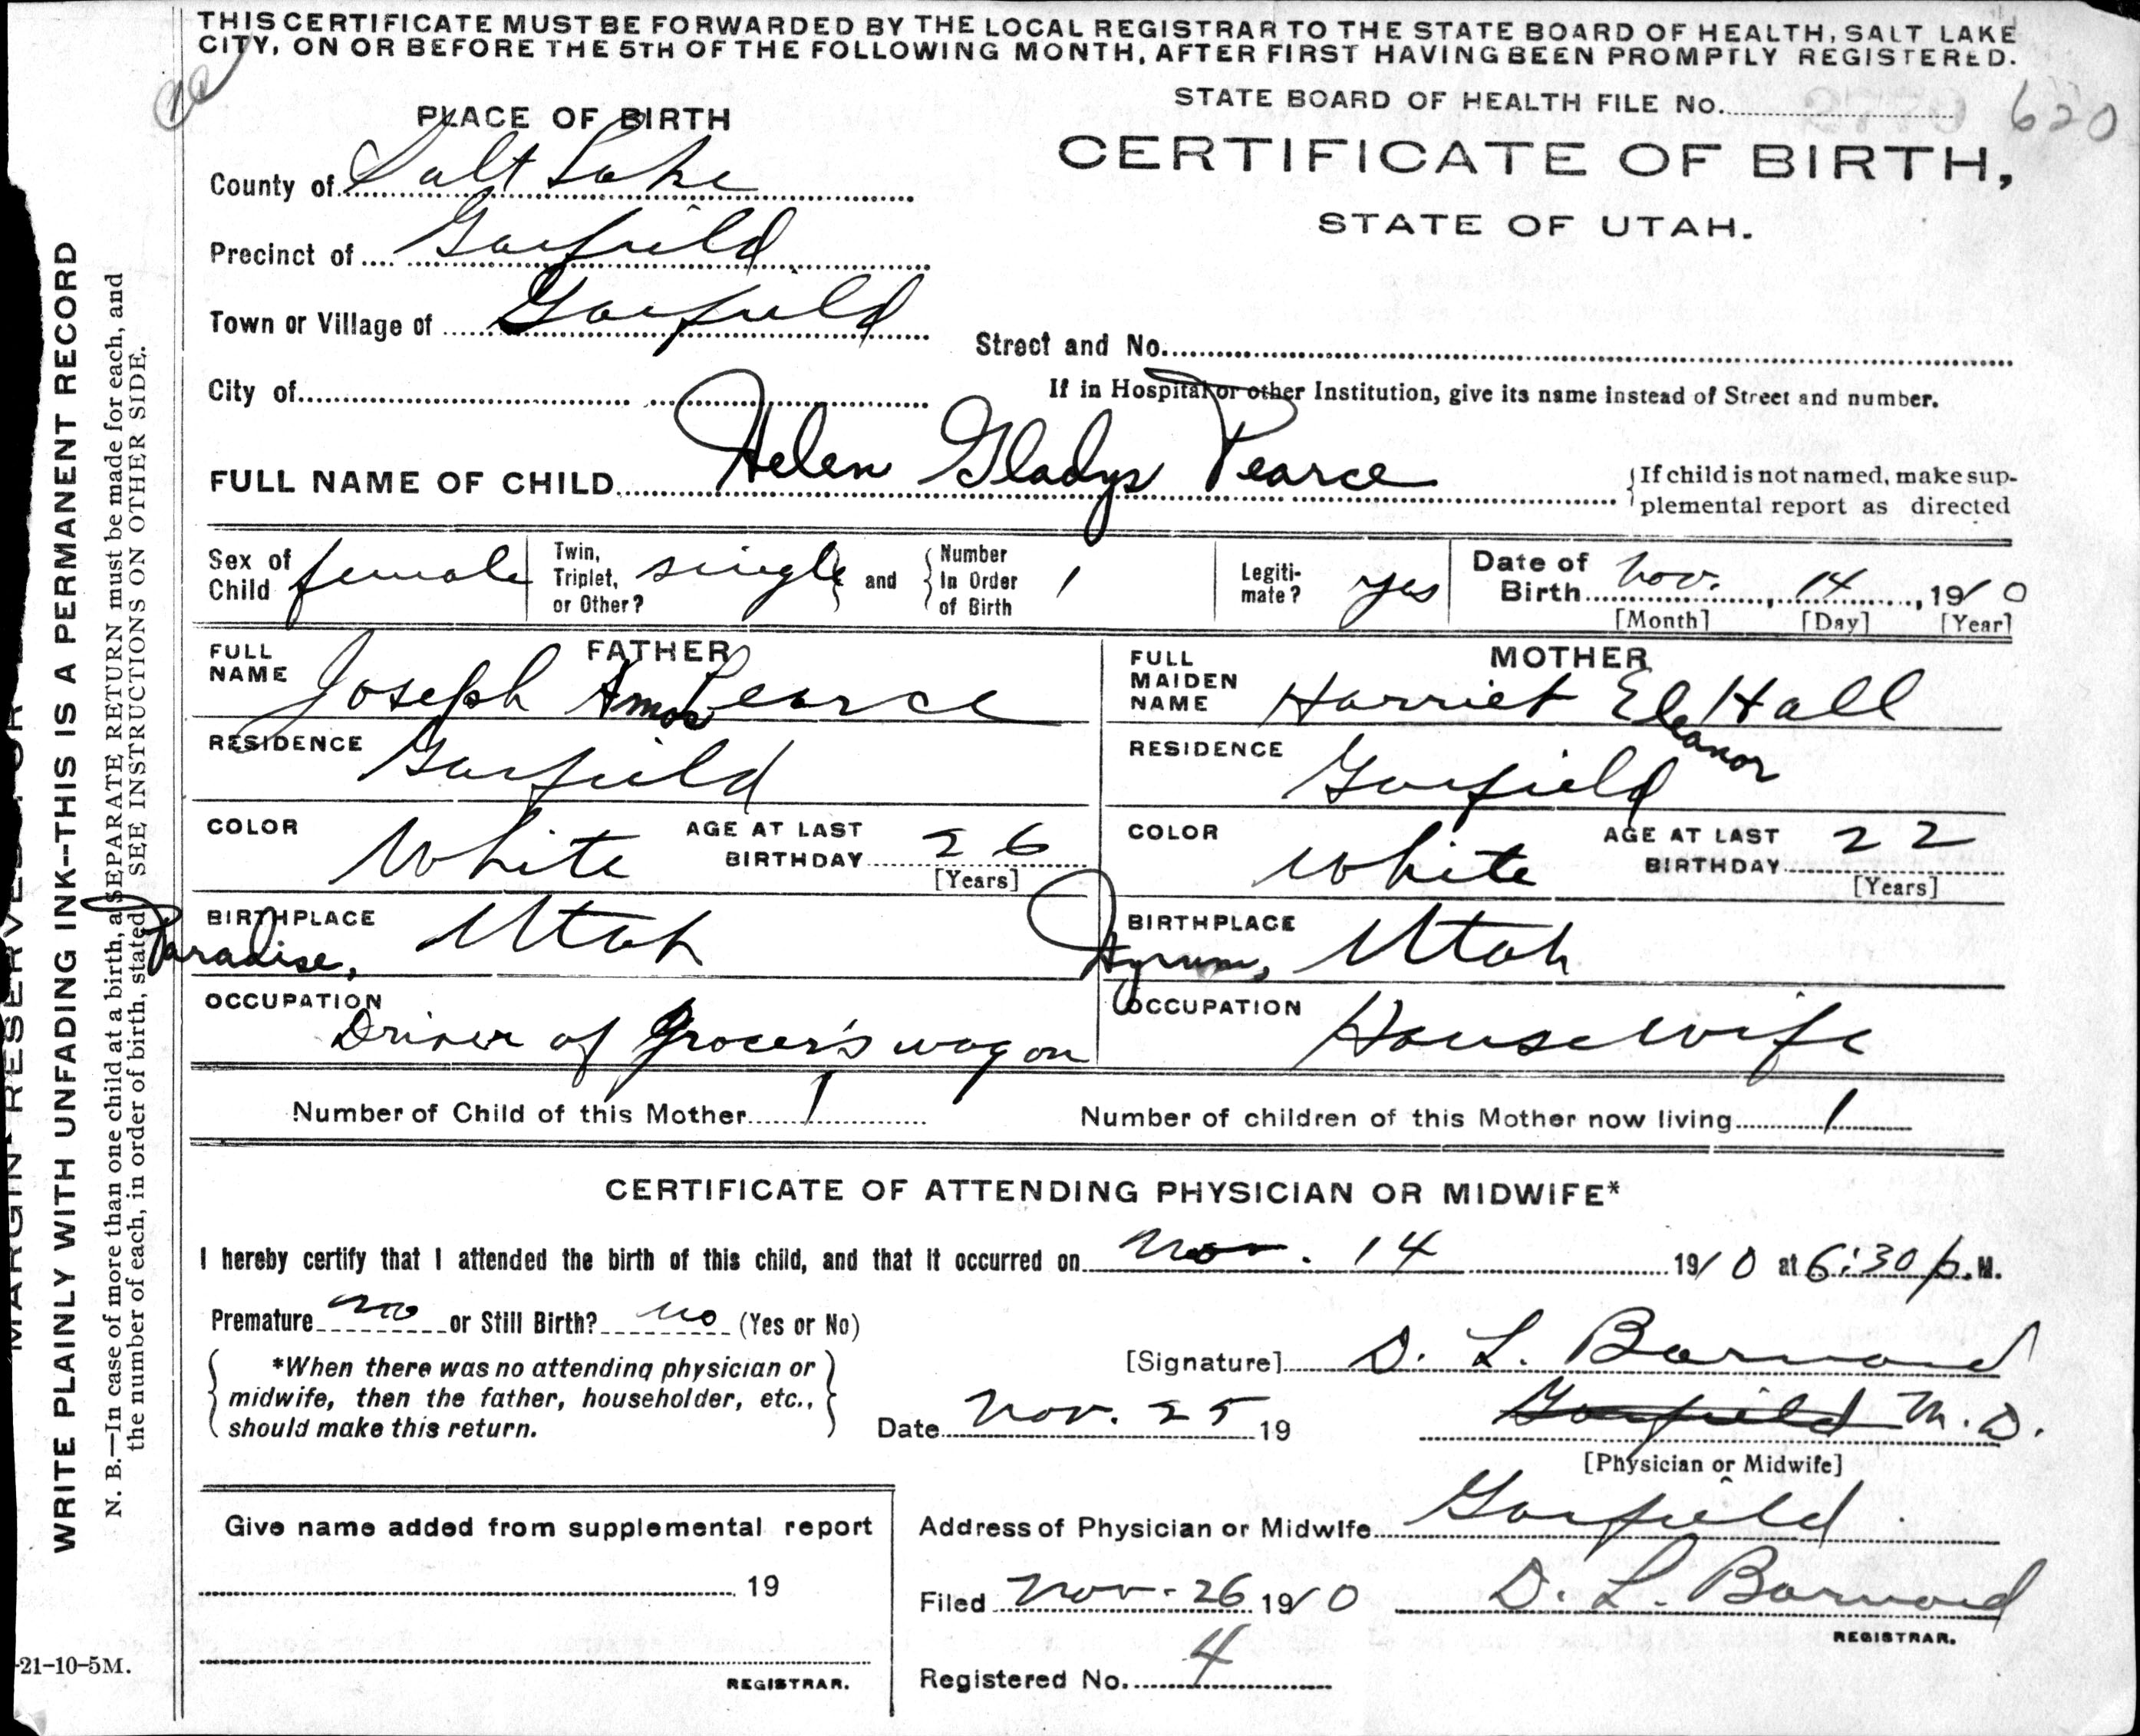 THIS CERTIFICATE MUST BE FORWARDED BY THE LOCAL REGISTRAR TO THE STATE BOARD OF HEALTH, SALT LAKE
CITY, ON OR BEFORE THE 5TH OF THE FOLLOWING MONTH, AFTER FIRST HAVING BEEN PROMPTLY REGISTERED.
STATE BOARD OF HEALTH FILE No. 620
CERTIFICATE OF BIRTH,
STATE OF UTAH.
PLACE OF BIRTH
County of Salt Lake
Precinct of Garfield
Town or Village of Garfield
Street and No.
City of
If in Hospital or other Institution, give its name instead of Street and number.
FULL NAME OF CHILD Helen Gladys Pearce
{If child is not named, make sup-
plemental report as directed
Sex of Child female
Twin, Triplet, or Other? single } and { Number In Order of Birth 1
Legiti-mate? yes
Date of Birth Nov. 14, 1910
[Month] [Day] [Year]
FATHER
FULL NAME Joseph Amos Pearce
RESIDENCE Garfield
COLOR White AGE AT LAST BIRTHDAY 26
[Years]
BIRTHPLACE Paradise, Utah
OCCUPATION Driver of Grocer's wagon
MOTHER
FULL MAIDEN NAME Harriet Eleanor Hall
RESIDENCE Garfield
COLOR White AGE AT LAST BIRTHDAY 22
[Years]
BIRTHPLACE Hyrum, Utah
OCCUPATION Housewife
Number of Child of this Mother 1 Number of children of this Mother now living 1
CERTIFICATE OF ATTENDING PHYSICIAN OR MIDWIFE*
I hereby certify that I attended the birth of this child, and that it occurred on Nov. 14 1910 at 6:30 p.M.
Premature no or Still Birth? no (Yes or No)
{ *When there was no attending physician or
midwife, then the father, householder, etc.,
should make this return. }
[Signature] D. L. Barnard
Date Nov. 25 19
Garfield M. D.
[Physician or Midwife]
Give name added from supplemental report
19
REGISTRAR.
Address of Physician or Midwife Garfield
Filed Nov. 26 1910 D. L. Barnard
REGISTRAR.
Registered No. 4
MARGIN RESERVED FOR
WRITE PLAINLY WITH UNFADING INK--THIS IS A PERMANENT RECORD
N. B.—In case of more than one child at a birth, a SEPARATE RETURN must be made for each, and
the number of each, in order of birth, stated. SEE INSTRUCTIONS ON OTHER SIDE.
-21-10-5M.